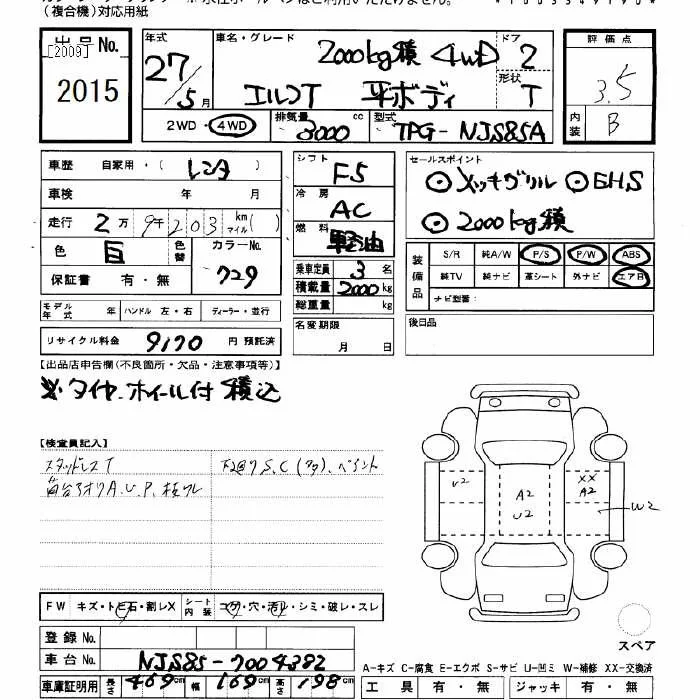 (複合機)対応用紙
出品No.
[2009]
2015
年式
27/5月
車名・グレード
2000kg積 4WD
エルフT 平ボディ
ドア
2
形状
T
評価点
3.5
内装
B
2WD・4WD
排気量
3000 cc
型式
TPG-NJS85A
車歴 自家用・( レンタ )
車検 年 月
走行 2万9千203 km マイル( )
色 白 色替 カラーNo. 729
保証書 有・無
シフト
F5
冷房
AC
燃料
軽油
乗車定員 3 名
積載量 2000 kg
総重量 kg
セールスポイント
◉メッキグリル ◉EHS
◉2000kg積
装備品
S/R 純A/W P/S P/W ABS
純TV 純ナビ 革シート 外ナビ エアB
ナビ型番:
モデル年式 年 ハンドル 左・右 ディーラー・並行
名変期限
月 日
後日品
リサイクル料金 9170 円 預託済
【出品店申告欄(不良箇所・欠品・注意事項等)】
※タイヤ、ホイール付 積込
【検査員記入】
スタッドレスT
下回りS.C(多)、ペイント
荷台アオリA.U.P.
U2
A2
U2
XX
A2
W2
FW キズ・トビ石・割レX
シート内装 コゲ・穴・汚レ・シミ・破レ・スレ
スペア
登録No.
車台No. NJS85-7004382
車庫証明用 長さ 469cm 幅 169cm 高さ 198cm
A-キズ C-腐食 E-エクボ S-サビ U-凹ミ W-補修 XX-交換済
工具 有・無 ジャッキ 有・無